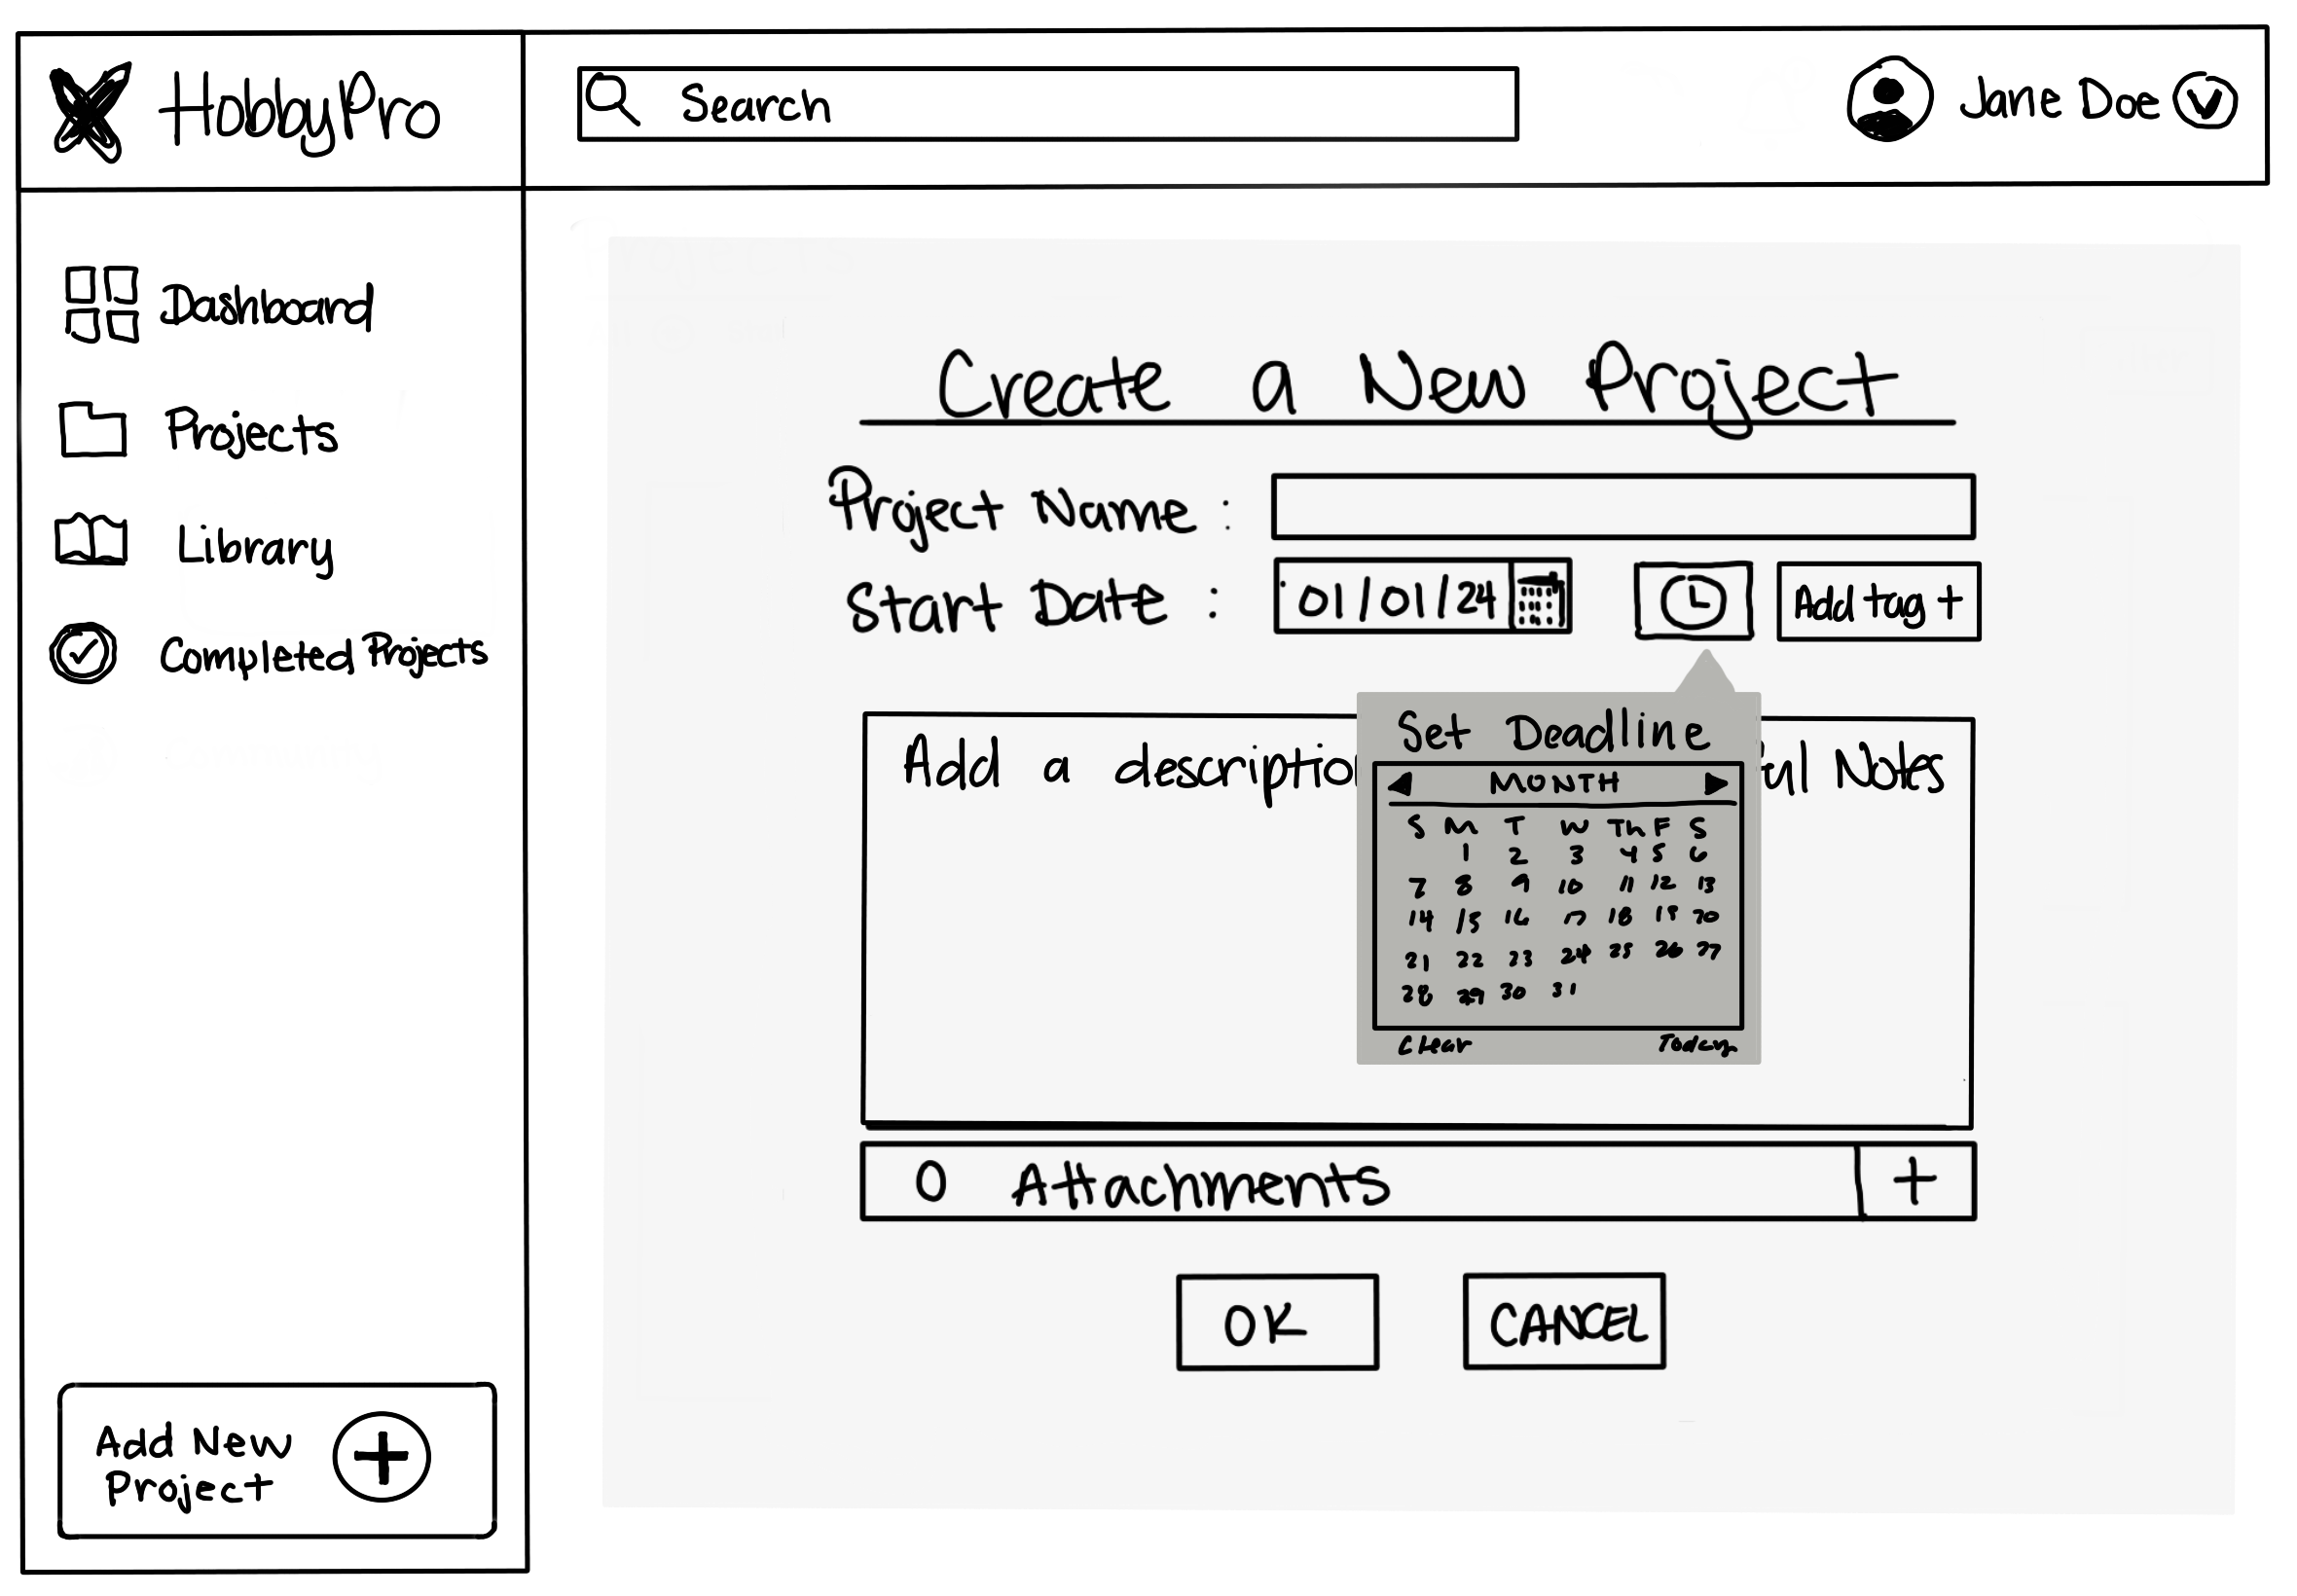 HobbyPro
Search
Jane Doe
Dashboard
Projects
Library
Completed Projects
Add New
Project
Create a New Project
Project Name :
Start Date : 01/01/24
Add tag +
Add a description
Notes
Set Deadline
MONTH
S M T W Th F S
1 2 3 4 5 6
7 8 9 10 11 12 13
14 15 16 17 18 19 20
21 22 23 24 25 26 27
28 29 30 31
Clear Today
0 Attachments +
OK
CANCEL